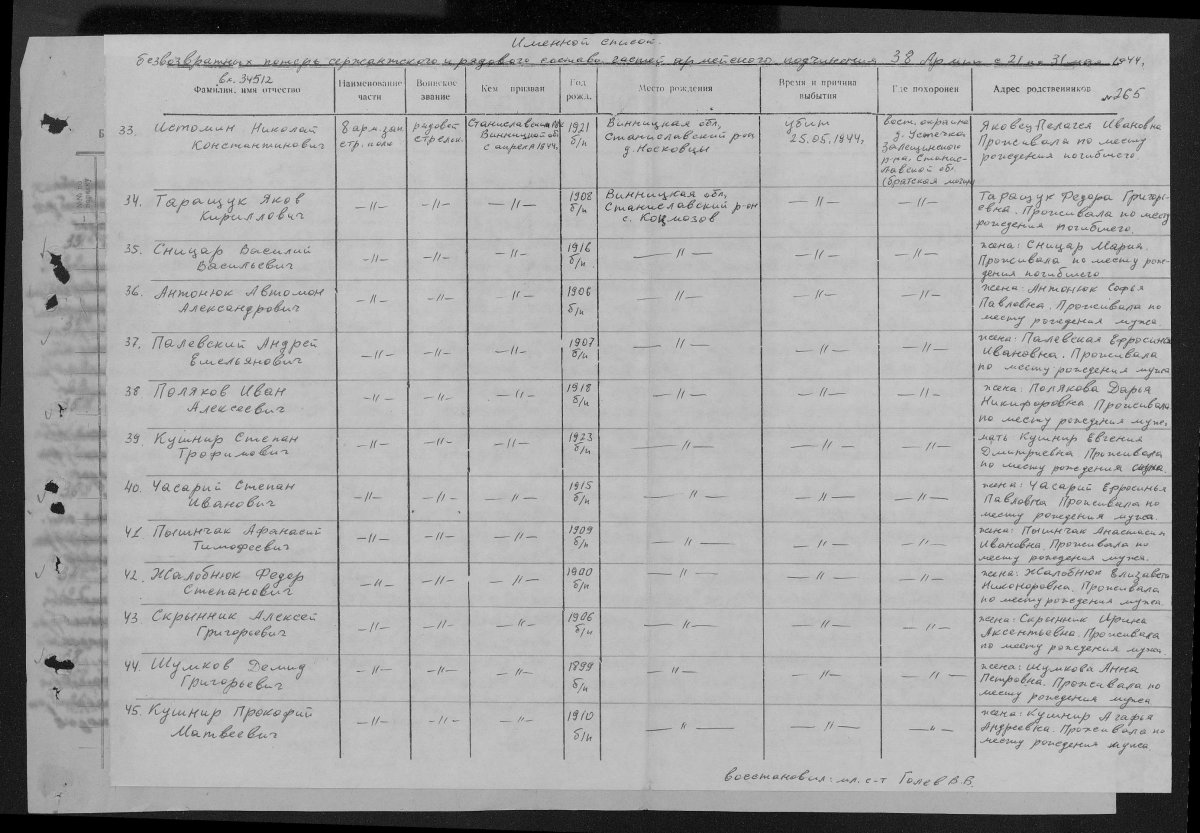 Именной список.
безвозвратных потерь сержантского и рядового состава частей армейского подчинения 38 Армии с 21 по 31 мая 1944г.
вх. 34512
№265
Фамилия, имя отчество Наименование части Воинское звание Кем призван Год рожд. Место рождения Время и причина выбытия Где похоронен Адрес родственников
33. Истомин Николай Константинович
8 арм. зап. стр. полк
рядовой стрелок
Станиславским РВК
Винницкой об.
с апреля 1944г.
1921
б/п
Винницкая обл,
Станиславский р-он
д. Носковцы
убит
25.05.1944г.
Вост. окраина
д. Устечка
Залещинского
р-на, Станис-
лавской об.
(братская могила
Яковец Пелагея Ивановна
Проживала по месту
рождения погибшего
34. Таращук Яков
Кириллович
—〃— —〃— —〃—
1908
б/п
Винницкая обл,
Станиславский р-он
с. Коцмозов
—〃— —〃—
Таращук Федора Григорь-
евна. Проживала по месту
рождения погибшего.
35. Сницар Василий
Васильевич
—〃— —〃— —〃—
1916
б/п.
—〃— —〃— —〃—
жена: Сницар Мария.
Проживала по месту рож-
дения погибшего
36. Антонюк Автомон
Александрович
—〃— —〃— —〃—
1906
б/п
—〃— —〃— —〃—
жена: Антонюк Софья
Павловна. Проживала по
месту рождения мужа.
37. Палевский Андрей
Емельянович
—〃— —〃— —〃—
1907
б/п
—〃— —〃— —〃—
жена: Палевская Ефросинья
Ивановна. Проживала
по месту рождения мужа
38 Поляков Иван
Алексеевич
—〃— —〃— —〃—
1918
б/п
—〃— —〃— —〃—
жена: Полякова Дарья
Никифоровна Проживала
по месту рождения мужа
39. Кушнир Степан
Трофимович
—〃— —〃— —〃—
1923
б/п
—〃— —〃— —〃—
мать: Кушнир Евгения
Дмитриевна Проживала
по месту рождения сына.
40. Часарий Степан
Иванович
—〃— —〃— —〃—
1915
б/п
—〃— —〃— —〃—
жена: Часарий Ефросинья
Павловна Проживала по
месту рождения мужа.
41 Пышнчак Афанасий
Тимофеевич
—〃— —〃— —〃—
1909
б/п
—〃— —〃— —〃—
жена: Пышнчак Анастасия
Ивановна. Проживала по
месту рождения мужа.
42. Жалобнюк Федор
Степанович
—〃— —〃— —〃—
1900
б/п
—〃— —〃— —〃—
жена: Жалобнюк Елизавета
Никоноровна. Проживала
по месту рождения мужа.
43 Скрынник Алексей
Григорьевич
—〃— —〃— —〃—
1906
б/п
—〃— —〃— —〃—
жена: Скрынник Ирина
Аксентьевна. Проживала
по месту рождения мужа
44. Шумков Демид
Григорьевич
—〃— —〃— —〃—
1899
б/п
—〃— —〃— —〃—
жена: Шумкова Анна
Петровна. Проживала по
месту рождения мужа
45. Кушнир Прокофий
Матвеевич
—〃— —〃— —〃—
1910
б/п
—〃— —〃— —〃—
жена: Кушнир Агафья
Андреевна. Проживала по
месту рождения мужа.
восстановил: мл. с-т Голев В.В.